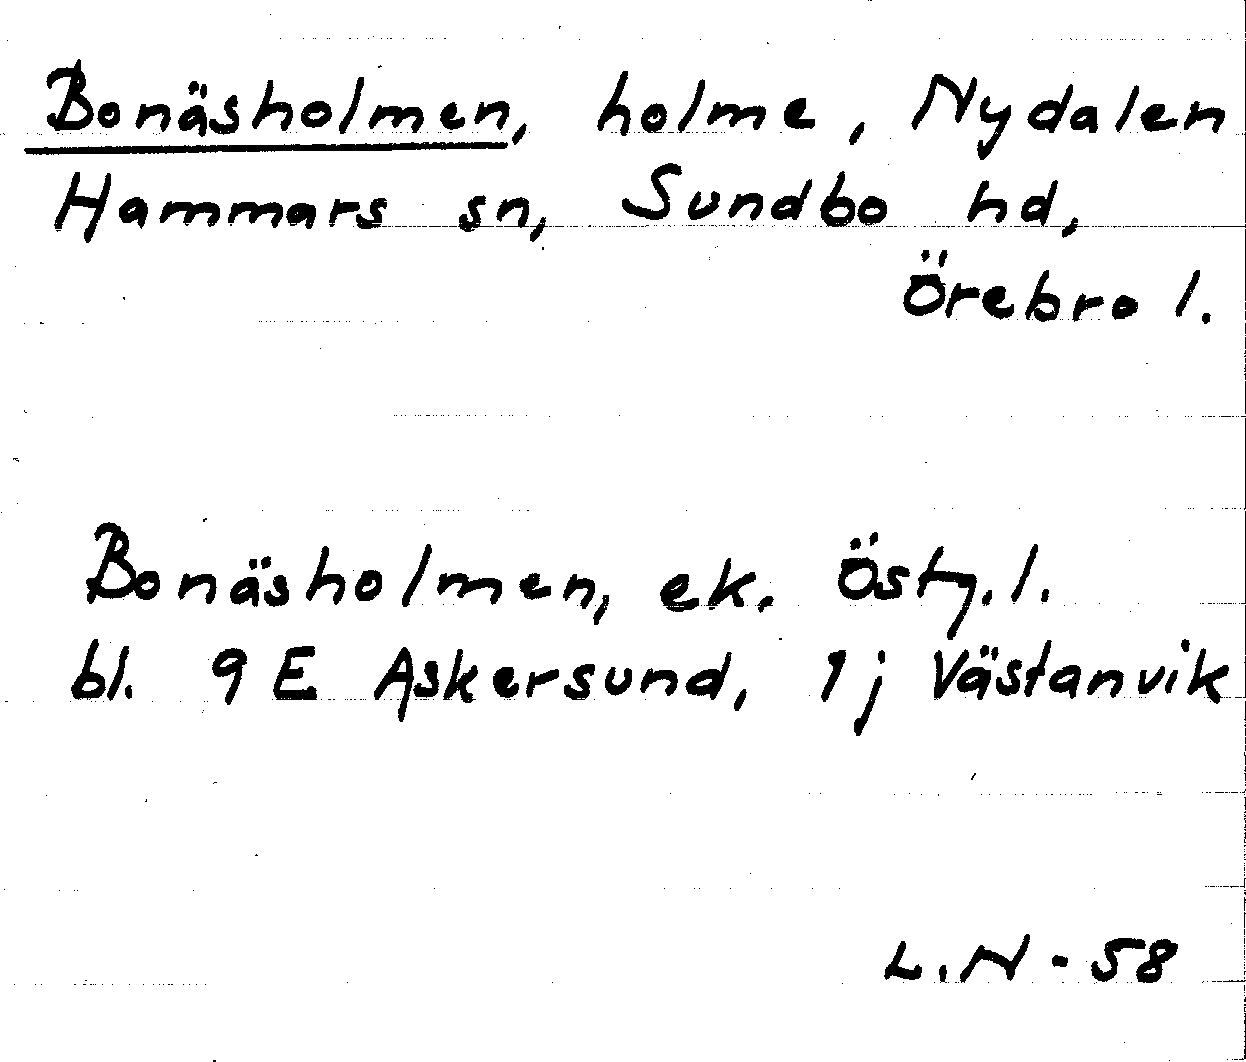 Bonäsholmen, holme, Nydalen
Hammars sn, Sundbo hd,
Örebro l.
Bonäsholmen, ek. Östg. l.
bl. 9 E Askersund, 1j Västanvik
L.N - 58